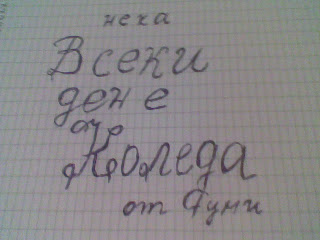 нека
Всеки
ден е
Коледа
от Фуми